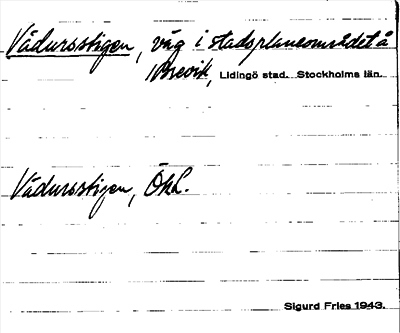 Vädursstigen, väg i stadsplaneområdet å
Brevik, Lidingö stad. Stockholms län.
Vädursstigen, Öhl.
Sigurd Fries 1943.